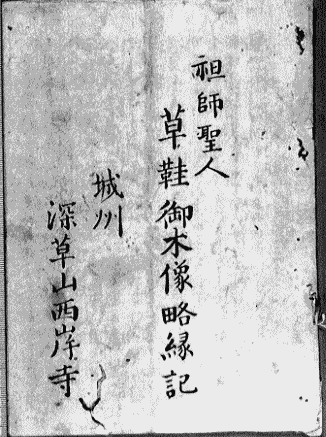 祖師聖人
草鞋御木像略縁記
城州
深草山西岸寺